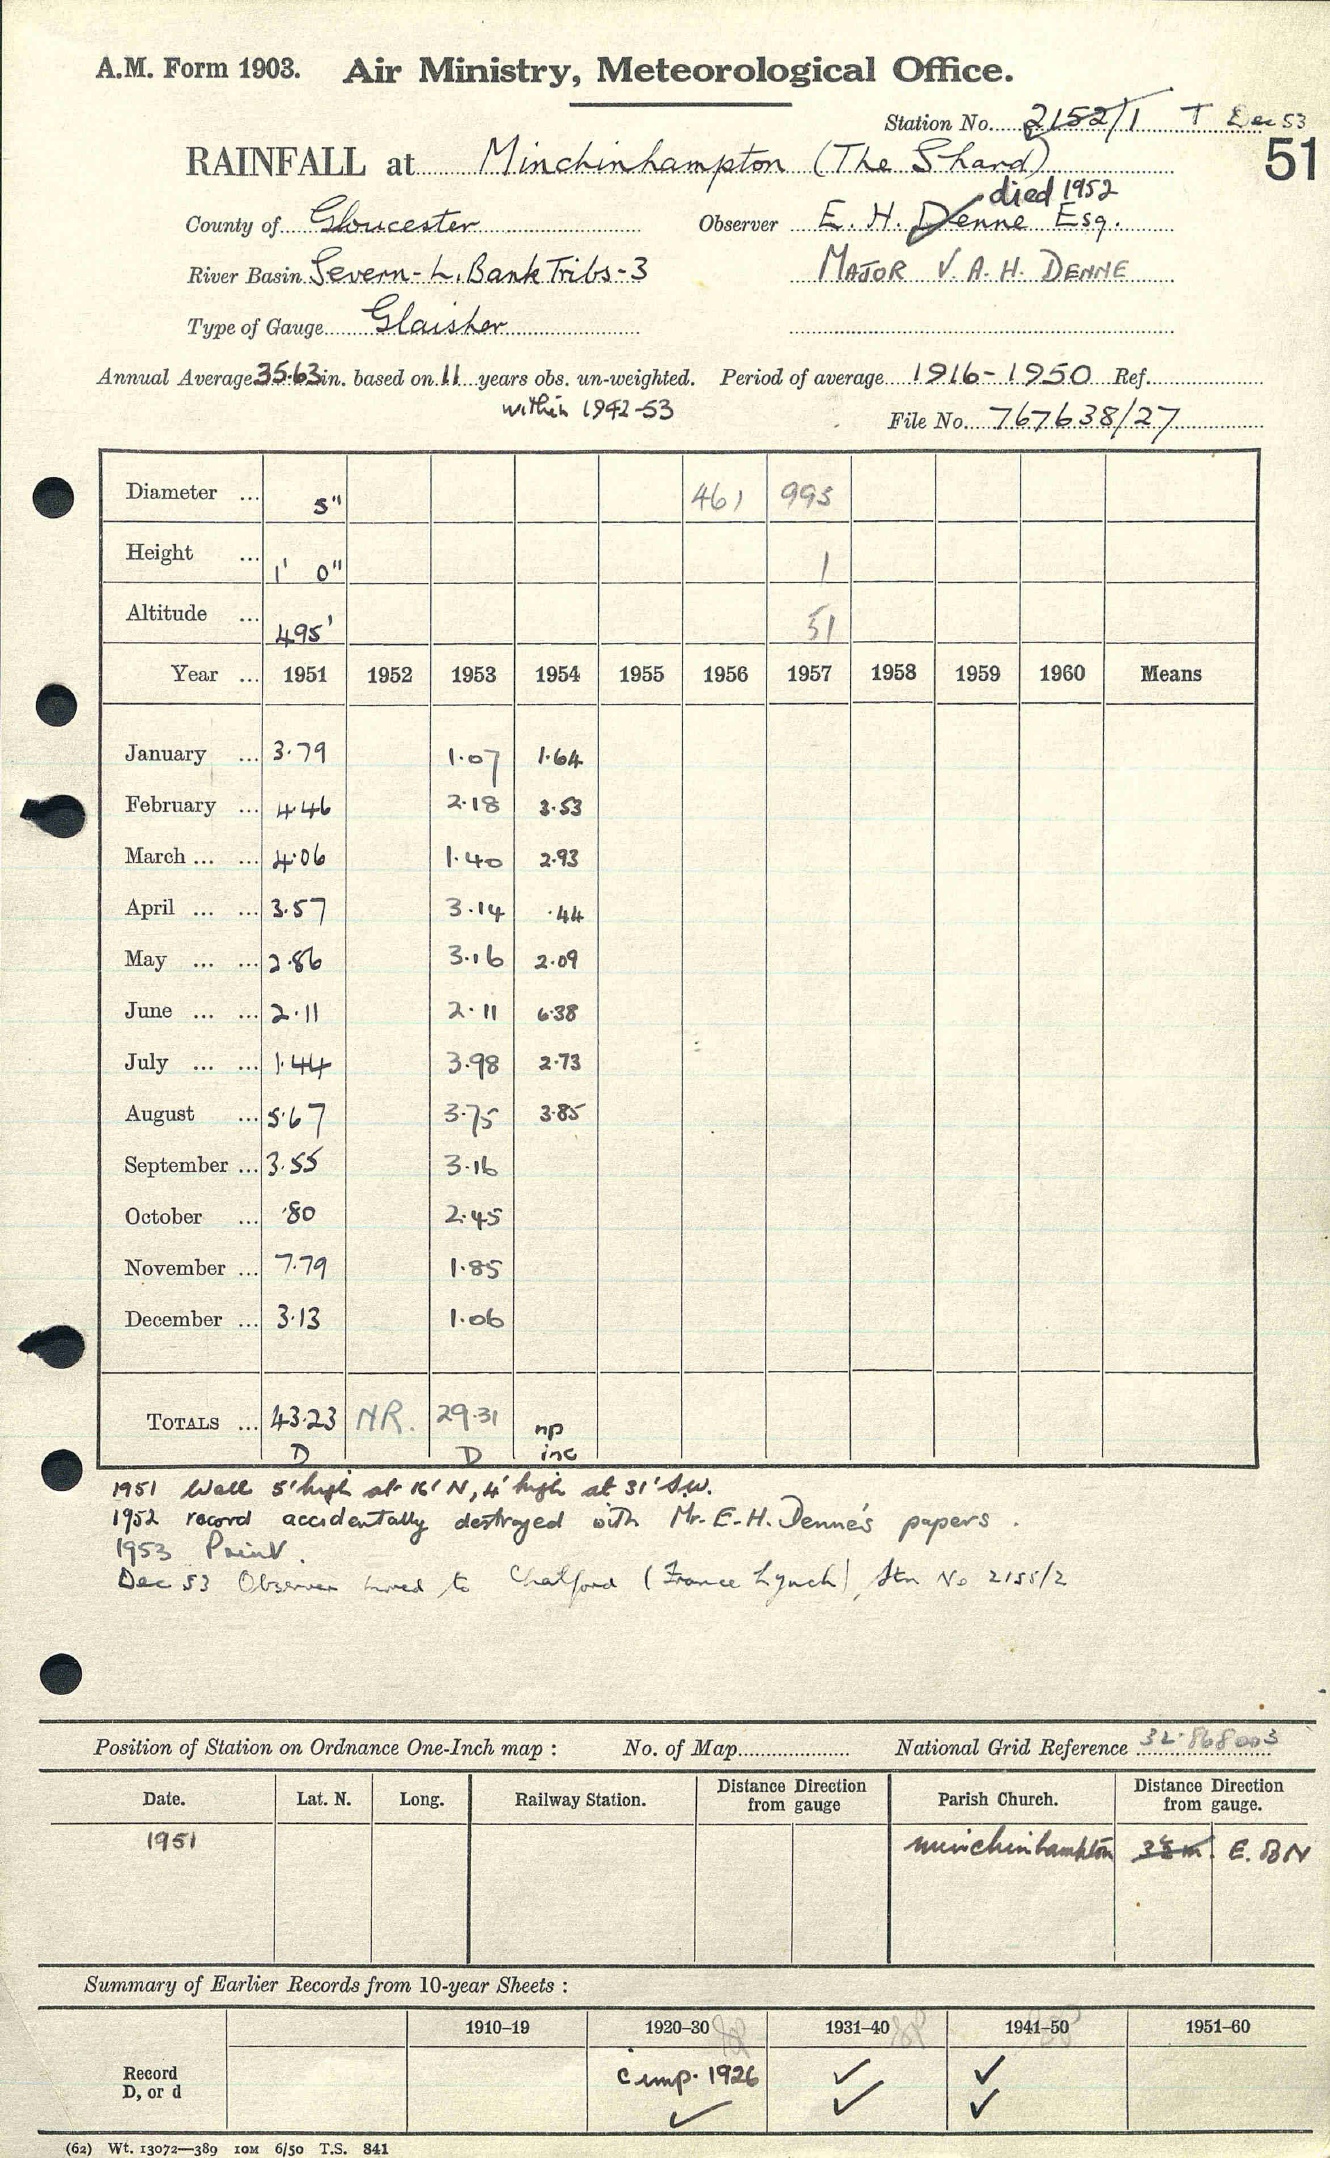 A.M. Form 1903. Air Ministry, Meteorological Office.
Station No. 2152/1 T Dec 53
51
RAINFALL at Minchinhampton (The Shard)
died 1952
County of Gloucester Observer E. H. Denne Esq.
River Basin Severn-L. Bank Tribs-3 MAJOR V. A. H. DENNE
Type of Gauge Glaisher
Annual Average 35.63 in. based on 11 years obs. un-weighted. Period of average 1916-1950 Ref.
within 1942-53
File No. 767638/27
Diameter ... 5" 461 993
Height ... 1' 0" 1
Altitude ... 495' 51
Year ... 1951 1952 1953 1954 1955 1956 1957 1958 1959 1960 Means
January ... 3.79 1.07 1.64
February ... 4.46 2.18 3.53
March ... ... 4.06 1.40 2.93
April ... ... 3.57 3.14 .44
May ... ... 2.86 3.16 2.09
June ... ... 2.11 2.11 6.38
July ... ... 1.44 3.98 2.73
August ... 5.67 3.75 3.85
September ... 3.55 3.16
October ... .80 2.45
November ... 7.79 1.85
December ... 3.13 1.06
TOTALS ... 43.23 NR. 29.31 np
D D inc
1951 Wall 5' high at 16' N, 4' high at 31' S.W.
1952 record accidentally destroyed with Mr. E.H. Denne's papers.
1953
Dec 53 Observer moved to Chalford (France Lynch), Stn No 2155/2
Position of Station on Ordnance One-Inch map : No. of Map National Grid Reference 32.868003
Date. Lat. N. Long. Railway Station. Distance Direction from gauge Parish Church. Distance Direction from gauge.
1951 Minchinhampton E. BN
Summary of Earlier Records from 10-year Sheets :
1910–19 1920–30 1931–40 1941–50 1951–60
Record c imp. 1926 ✓ ✓
D, or d ✓ ✓ ✓
(62) Wt. 13072—389 10M 6/50 T.S. 841